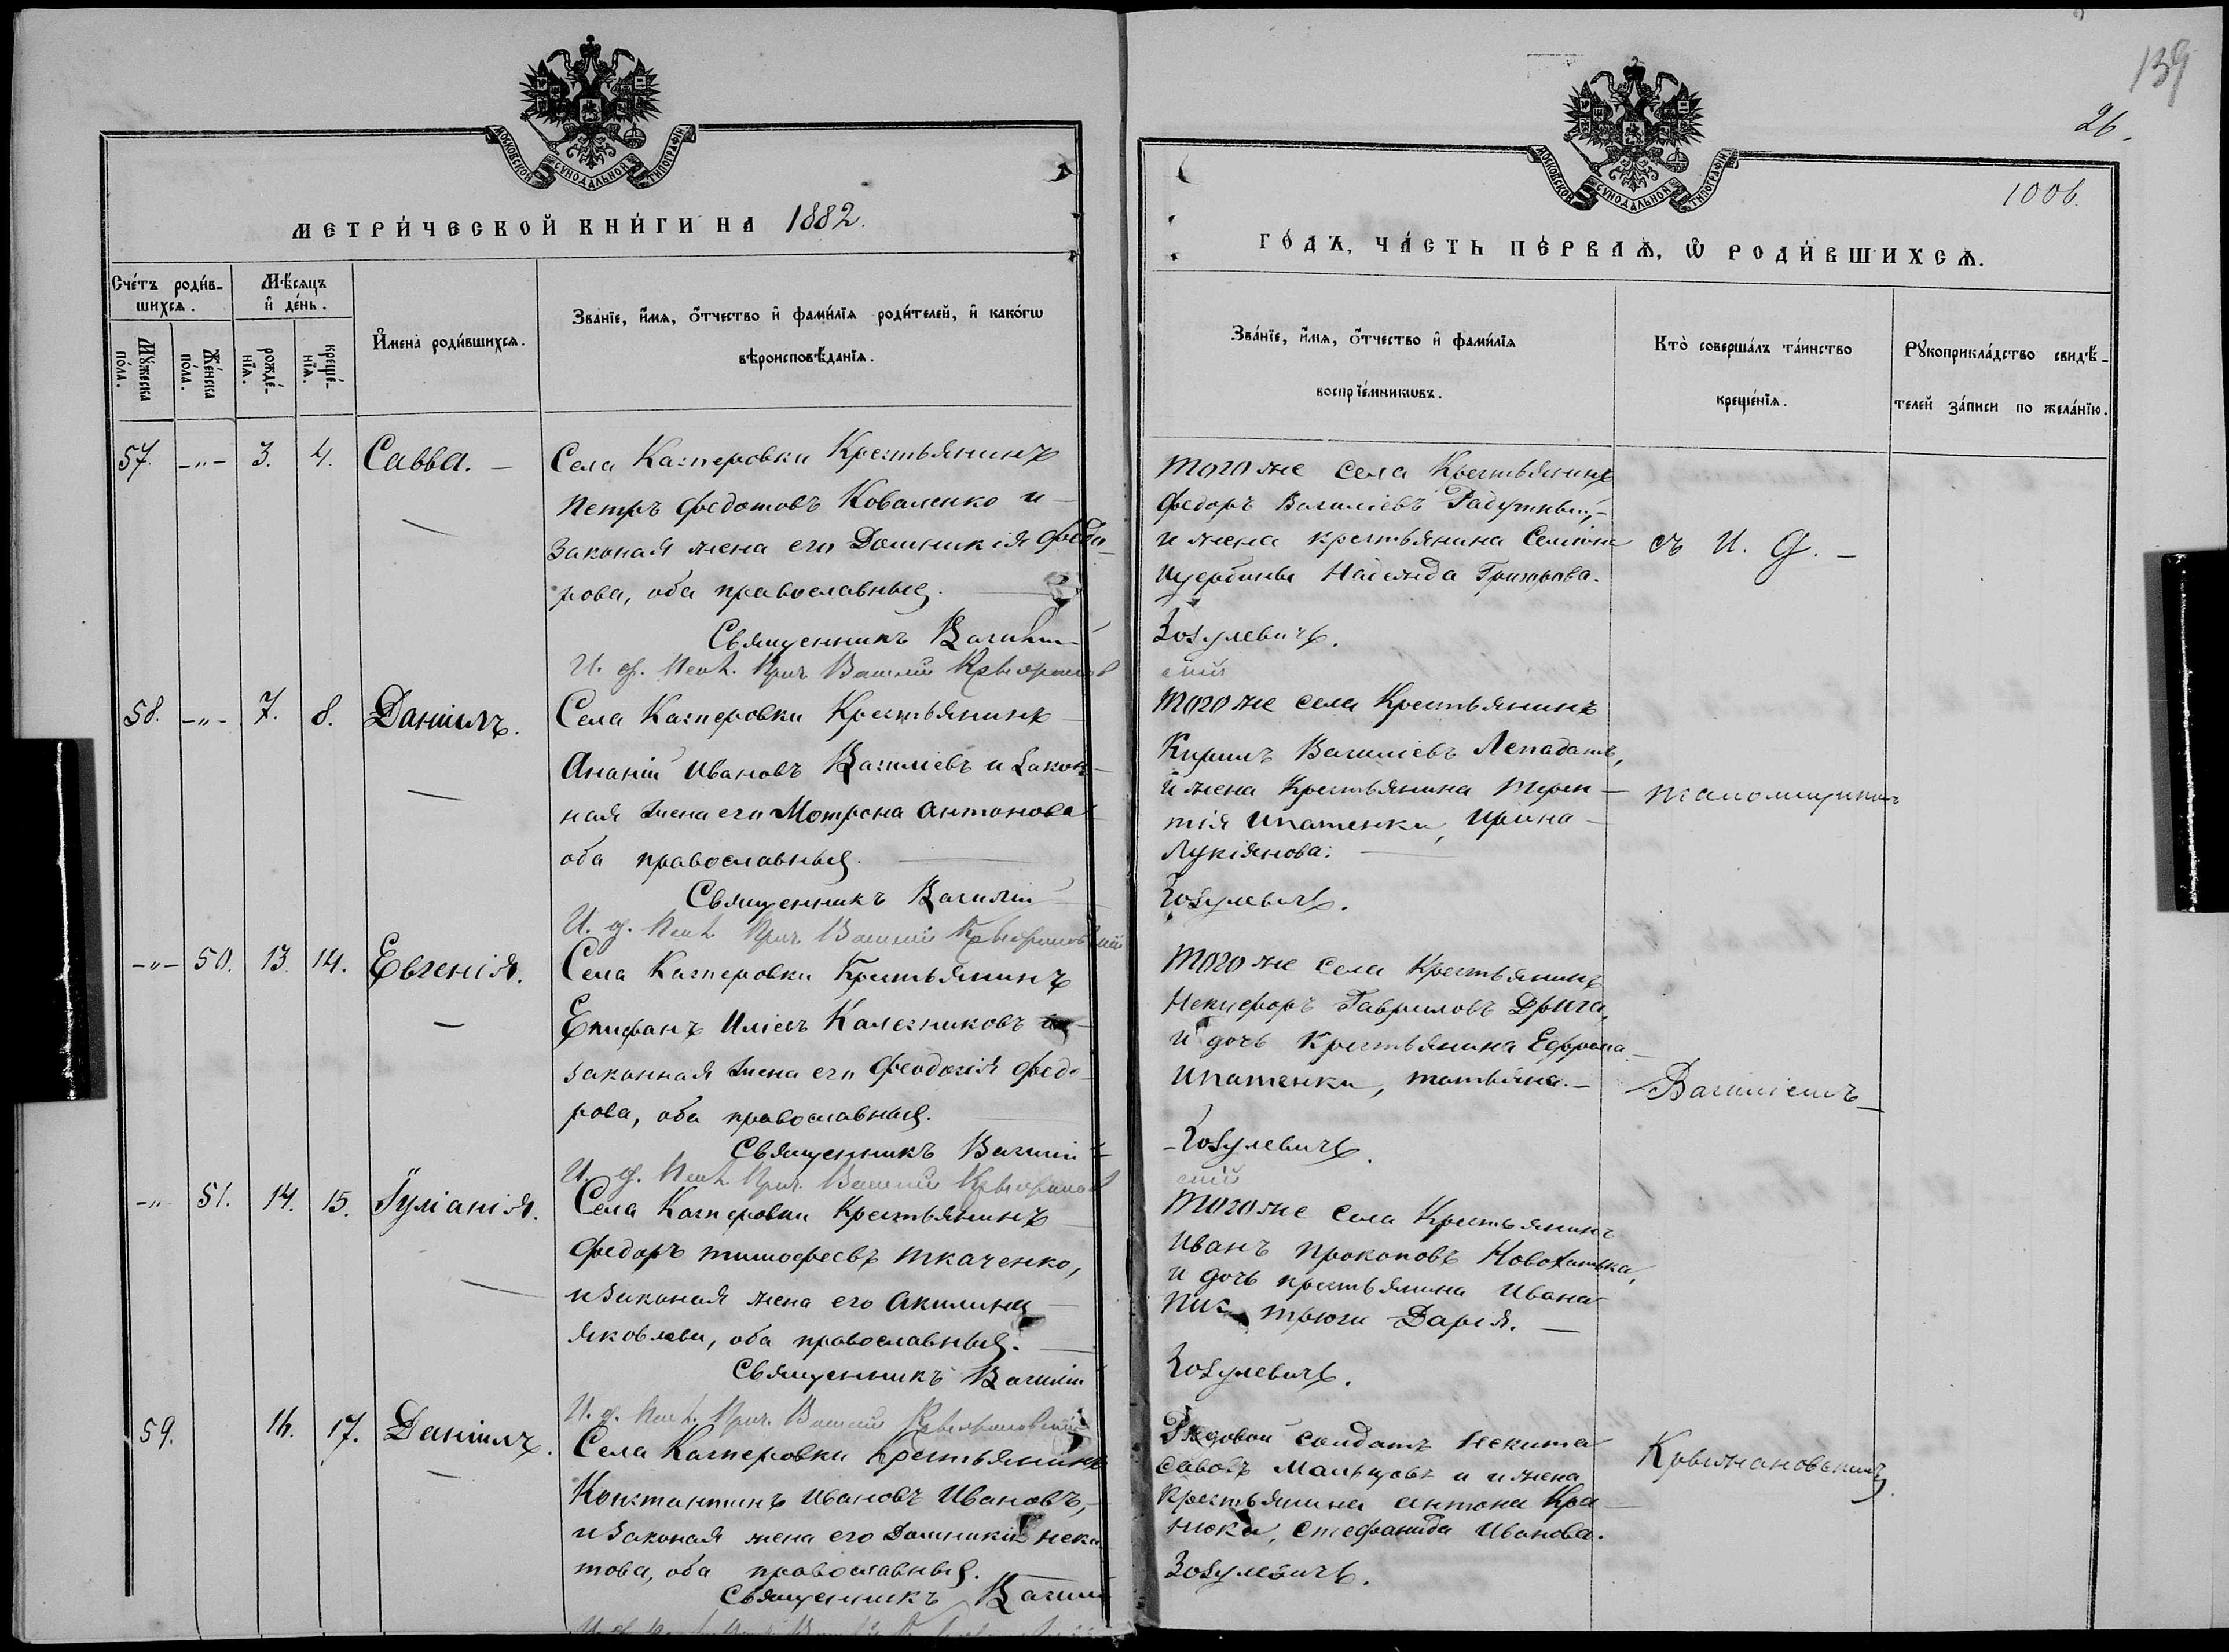 139
26.
1006.
МОСКОВСКОЙ СѴНОДАЛЬНОЙ ТИПОГРАФІИ
МОСКОВСКОЙ СѴНОДАЛЬНОЙ ТИПОГРАФІИ
МЕТРИ́ЧЕСКОЙ КНИ́ГИ НА 1882.
ГО́ДЪ, ЧА́СТЬ ПЕ́РВАѦ, Ѡ҆ РОДИ́ВШИХСѦ.
Сче́тъ роди́в-
шихсѧ.
Мꙋ́жеска по́ла.
Же́нска по́ла.
Мѣ́сѧцъ
и҆ де́нь.
рожде́-
нїѧ.
креще́-
нїѧ.
И҆мена̀ роди́вшихсѧ.
Зва́нїе, и҆́мѧ, о҆́тчество и҆ фами́лїѧ роди́телей, и҆ како́гѡ
вѣроисповѣ́данїѧ.
Зва́нїе, и҆́мѧ, о҆́тчество и҆ фами́лїѧ
воспрїе́мникѡвъ.
Кто̀ соверша́лъ та́инство
креще́нїѧ.
Рꙋкоприкла́дство свидѣ́-
телей за́писи по жела́нїю.
57. -"- 3. 4. Савва. —
Села Касперовки Крестьянинъ
Петръ Федотовъ Коваленко и
законая жена его Домникія Федо-
рова, оба православныя.
Священникъ Василій
И. ф. Псал. Прич. Василій Крыжановскій
того же села Крестьянинъ
Федоръ Василіевъ
и жена крестьянина Семіона
Щербины Надежда
Зозулевичъ.
съ И. Д. —
58. -"- 7. 8. Даніилъ.
Села Касперовки Крестьянинъ
Ананій Ивановъ Василіевъ и закон-
ная жена его Мотрона Антонова
оба православныя.
Священникъ Василій
И. ф. Псал. Прич. Василій Крыжановскій
того же села Крестьянинъ
Кирилъ Василіевъ Лепадатъ,
и жена Крестьянина Терен-
тія Ипатенки, Ирина
Лукіянова.
Зозулевичъ.
-"- 50. 13. 14. Евгенія.
Села Касперовки Крестьянинъ
Епифанъ Иліевъ Калесниковъ и
законная жена его Феодосія Федо-
рова, оба православныя.
Священникъ Василій
И. ф. Псал. Прич. Василій Крыжановскій
того же села Крестьянинъ
Некифоръ Гавриловъ Дрига,
и дочь Крестьянина Ефрема
Ипатенки, татьяна. —
Зозулевичъ.
Василіемъ
-"- 51. 14. 15. Іуліанія.
Села Касперовки Крестьянинъ
Федоръ тимофеевъ ткаченко,
и законая жена его Акилина
яковлева, оба православныя.
Священникъ Василій
И. ф. Псал. Прич. Василій Крыжановскій
того же села Крестьянинъ
Иванъ Прокоповъ Новохатька,
и дочь крестьянина Ивана
Дарія. —
Зозулевичъ.
59. 16. 17. Даніилъ.
Села Касперовки Крестьянинъ
Константинъ Ивановъ Ивановъ,
и законая жена его Домникія неки-
това, оба православныя.
Священникъ Василій
Рядовой солдатъ Некита
савовъ Мальцовъ и жена
Крестьянина антона Кра-
нюка, Стефанида Иванова.
Зозулевичъ.
Крыжановскимъ